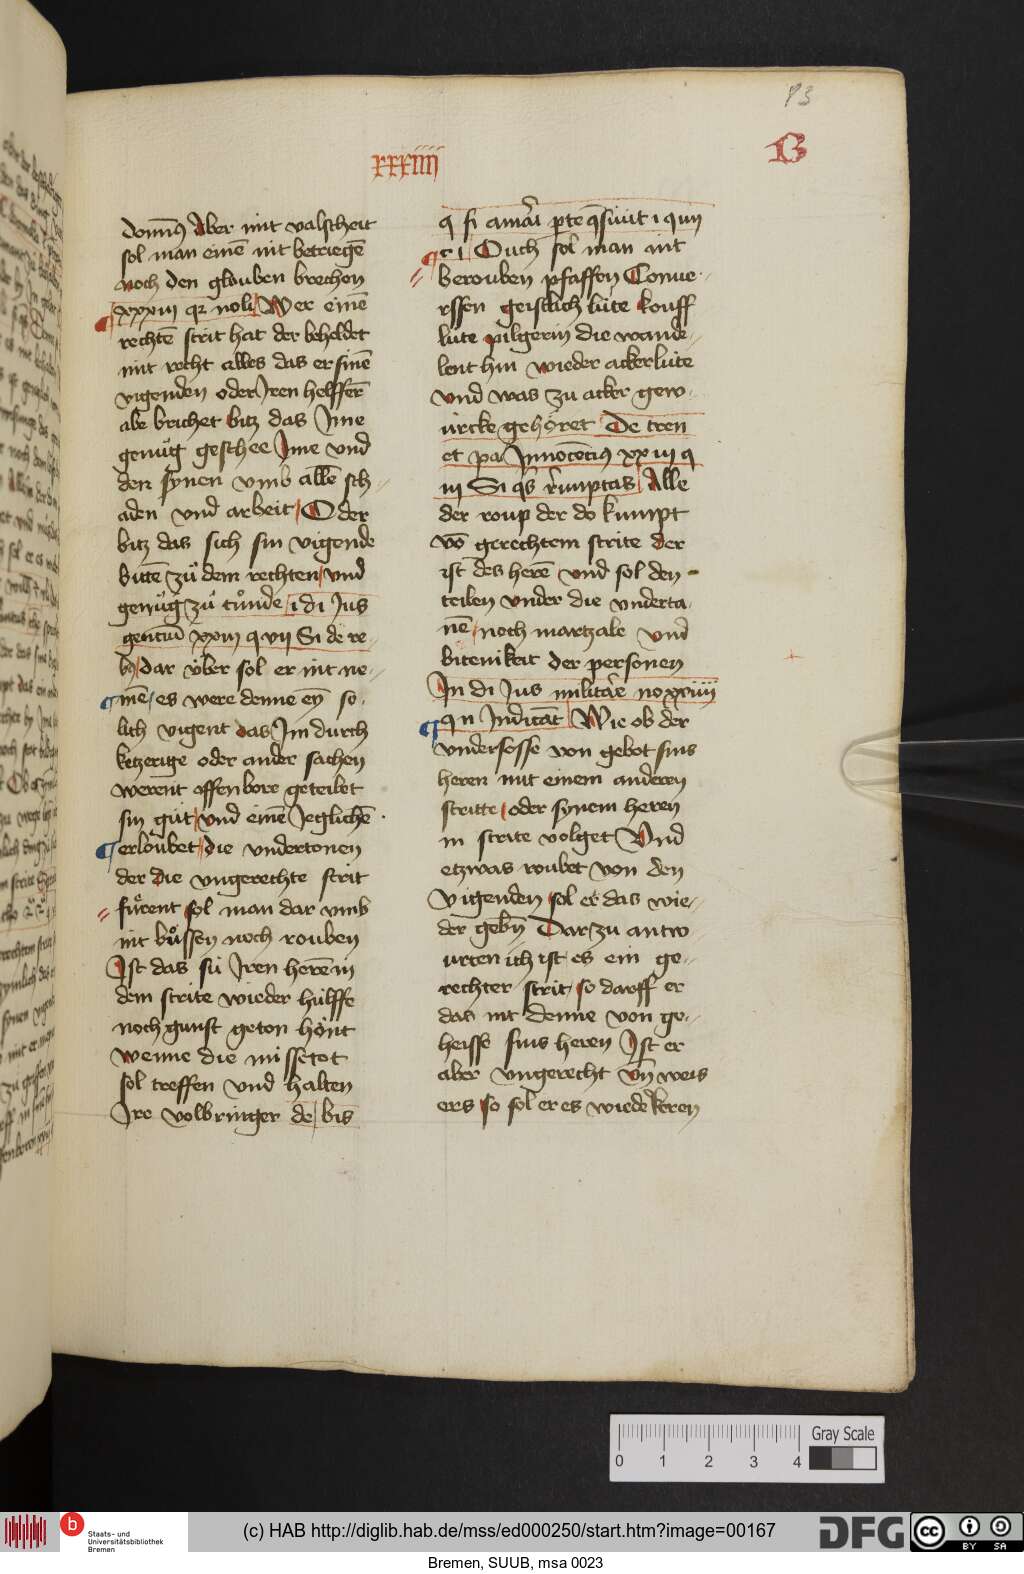 83
B
xxxiiii
dominus Aber mit valscheit
sol man einē nit betriegē
noch den glouben brechen
xxxiii qz noli Wer einē
rechtē strit hat der beheldet
mit recht alles das er sinē
vigenden oder Iren helfferē
abe brichet bitz das Ime
genůg geschee Ime vnd
den synen vmb allē sch
aden vnd arbeit Oder
bitz das sich sin vigende
bittē zů dem rechten vnd
genůg zů tůnde i di Jus
gentiū xxiii q vii Si de re
by dar vber sol er nit ne
mē es were denne eȳ so
lich vigent das Im durch
ketzerige oder ander sachen
werent offenbore geteilet
sin gůt vnd einē Jeglichē
erloubet die vndertonen
der die vngerechte strit
fůrent sol man dar vmb
nit bůssen noch rouben
Ist das sü Iren herē in
dem strite wieder hülffe
noch gunst geton hönt
wenne die missetot
sol treffen vnd halten
Ire volbringer de bis
c i Ouch sol man nit
berouben pfaffen Conue
rssen geistlich lüte kouff
lüte pilgerin die wande
lent hin wieder ackerlüte
vnd was zu acker gew
ürcke gehöret De tren
et pa Innocēcius xxiii q
iii Si qs Alle
der roup der do kumpt
vō gerechtem strite der
ist des herē vnd sol den
teilen vnder die vnderta
nē noch martzale vnd
bitenikeit der personen
In di Jus militāe no xxiiii
q ii Indicāt Wie ob der
vndersosse von gebot sins
heren mit einem anderen
stritte oder synem heren
in strite volget Vnd
etzwas roubet von den
vigenden sol er das wie
der gebn Darzu antw
urten ich ist es ein ge
rechter strit so darff er
das nit denne von ge
heisse sins heren Ist er
aber vngerecht vn̄ weis
ers so sol er es wiedekeren
0 1 2 3 4
Gray Scale
b
Staats- und
Universitätsbibliothek
Bremen
(c) HAB http://diglib.hab.de/mss/ed000250/start.htm?image=00167
DFG
cc
BY SA
Bremen, SUUB, msa 0023